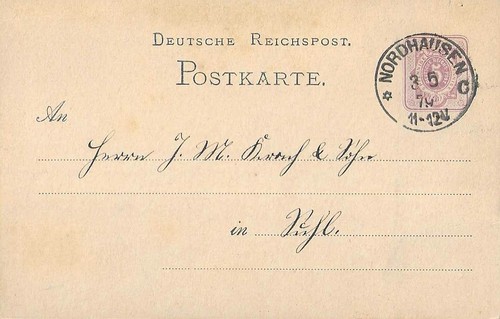 DEUTSCHE REICHSPOST.
POSTKARTE.
NORDHAUSEN C
3 5
79
11-12V
An
Herrn J. M. & Söhne
in Suhl.